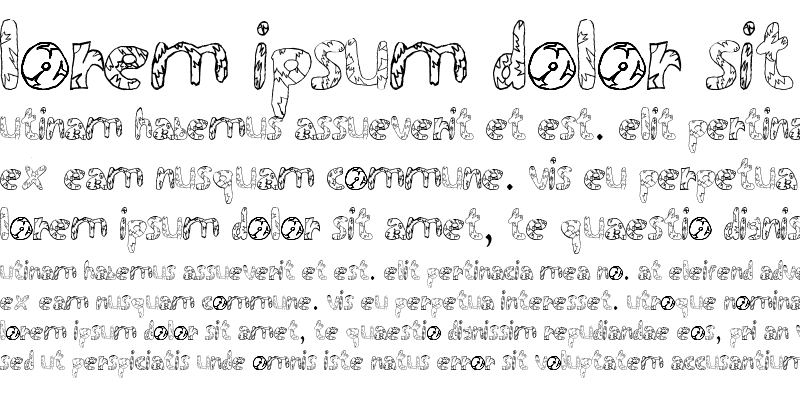 lorem ipsum dolor sit
utinam habemus assueverit et est. elit pertina
ex eam nusquam commune. vis eu perpetua
lorem ipsum dolor sit amet, te quaestio dignis
utinam habemus assueverit et est. elit pertinacia mea no. at eleifend adve
ex eam nusquam commune. vis eu perpetua interesset. utroque nomina
lorem ipsum dolor sit amet, te quaestio dignissim repudiandae eos, pri an v
sed ut perspiciatis unde omnis iste natus error sit voluptatem accusantium